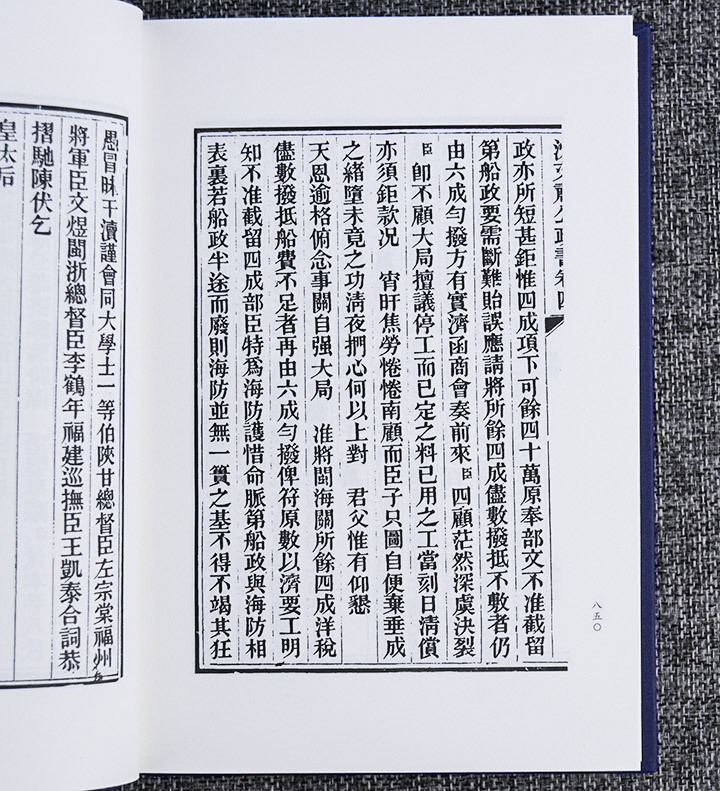 沈文肅公政書卷四
政亦所短甚鉅惟四成項下可餘四十萬原奉部文不准截留
第船政要需斷難貽誤應請將所餘四成儘數撥抵不敷者仍
由六成勻撥方有實濟函商會奏前來臣四顧茫然深虞決裂
臣卽不顧大局擅議停工而已定之料已用之工當刻日清償
亦須鉅款况　宵旰焦勞惓惓南顧而臣子只圖自便棄垂成
之緒墮未竟之功淸夜捫心何以上對　君父惟有仰懇
天恩逾格俯念事關自强大局　准將閩海關所餘四成洋稅
儘數撥抵船費不足者再由六成勻撥俾符原數以濟要工明
知不准截留四成部臣特爲海防護惜命脈第船政與海防相
表裏若船政半途而廢則海防並無一簣之基不得不竭其狂
八五〇
愚冒昧干瀆謹會同大學士一等伯陝甘總督臣左宗棠福州
將軍臣文煜閩浙總督臣李鶴年福建巡撫臣王凱泰合詞恭
摺馳陳伏乞
皇太后